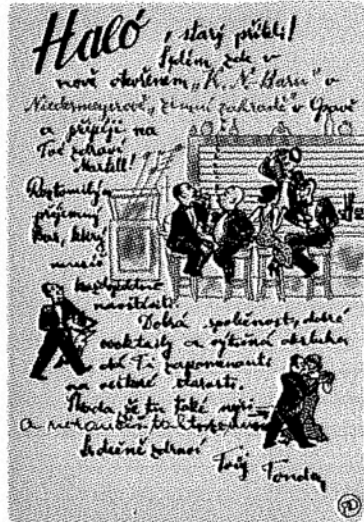 Haló, starý příteli!
Sedím zde v
nově otevřeném „K. N. Baru" v
Niedermeyerově „zimní zahradě" v Opavě
a připíjím na
Tvé zdraví
Martell!
Roztomilý a
příjemný
bar, který
musíš
navštívit.
Dobrá společnost, dobré
cocktaily a výtečná obsluha
dá Ti zapomenouti
na veškeré starosti.
Škoda, že tu také nejsi
Srdečně zdraví
Tvůj Tonda